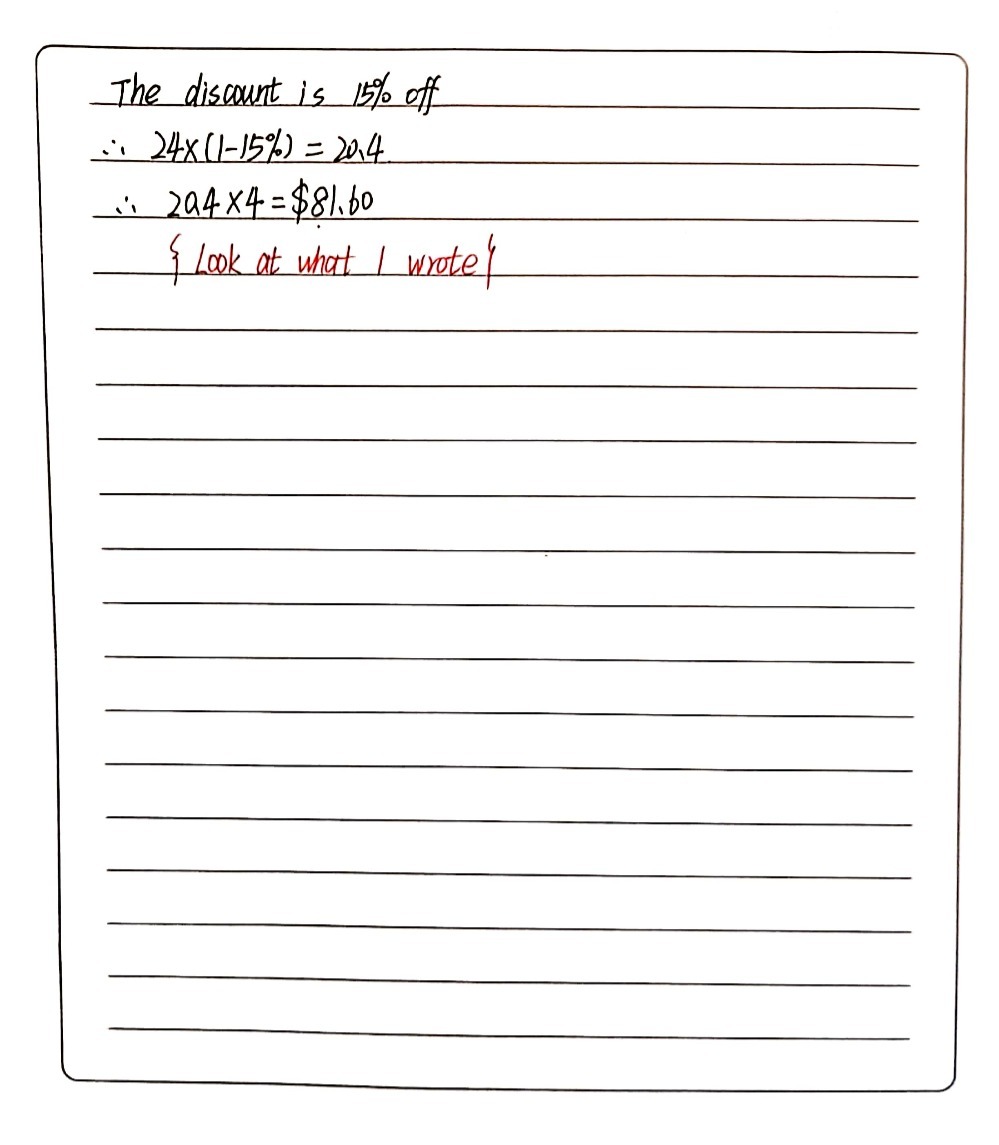 The discount is 15% off
∴ 24×(1-15%) = 20.4
∴ 20.4×4=$81.60
{Look at what I wrote}